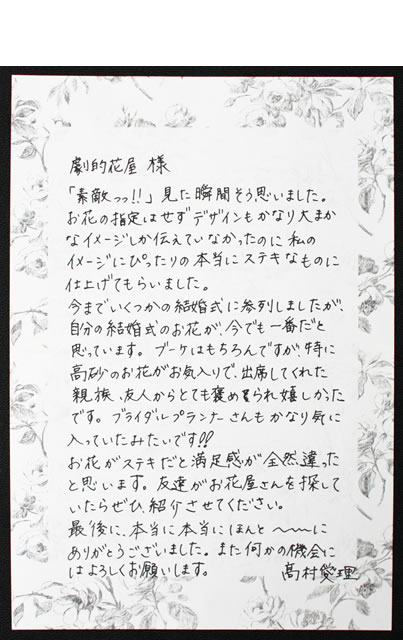 劇的花屋 様
「素敵っっ!!」見た瞬間そう思いました。
お花の指定はせずデザインもかなり大まか
なイメージしか伝えていなかったのに私の
イメージにぴったりの本当にステキなものに
仕上げてもらいました。
今までいくつかの結婚式に参列しましたが、
自分の結婚式のお花が、今でも一番だと
思っています。ブーケはもちろんですが、特に
高砂のお花がお気入りで、出席してくれた
親族、友人からとても褒められ嬉しかった
です。ブライダルプランナーさんもかなり気に
入っていたみたいです!!
お花がステキだと満足感が全然違った
と思います。友達がお花屋さんを探して
いたらぜひ、紹介させてください。
最後に、本当に本当にほんと〜〜〜に
ありがとうございました。また何かの機会に
はよろしくお願いします。 髙村愛理